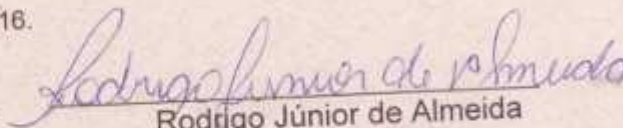 16.
Rodrigo Junior de Almeida
Rodrigo Júnior de Almeida